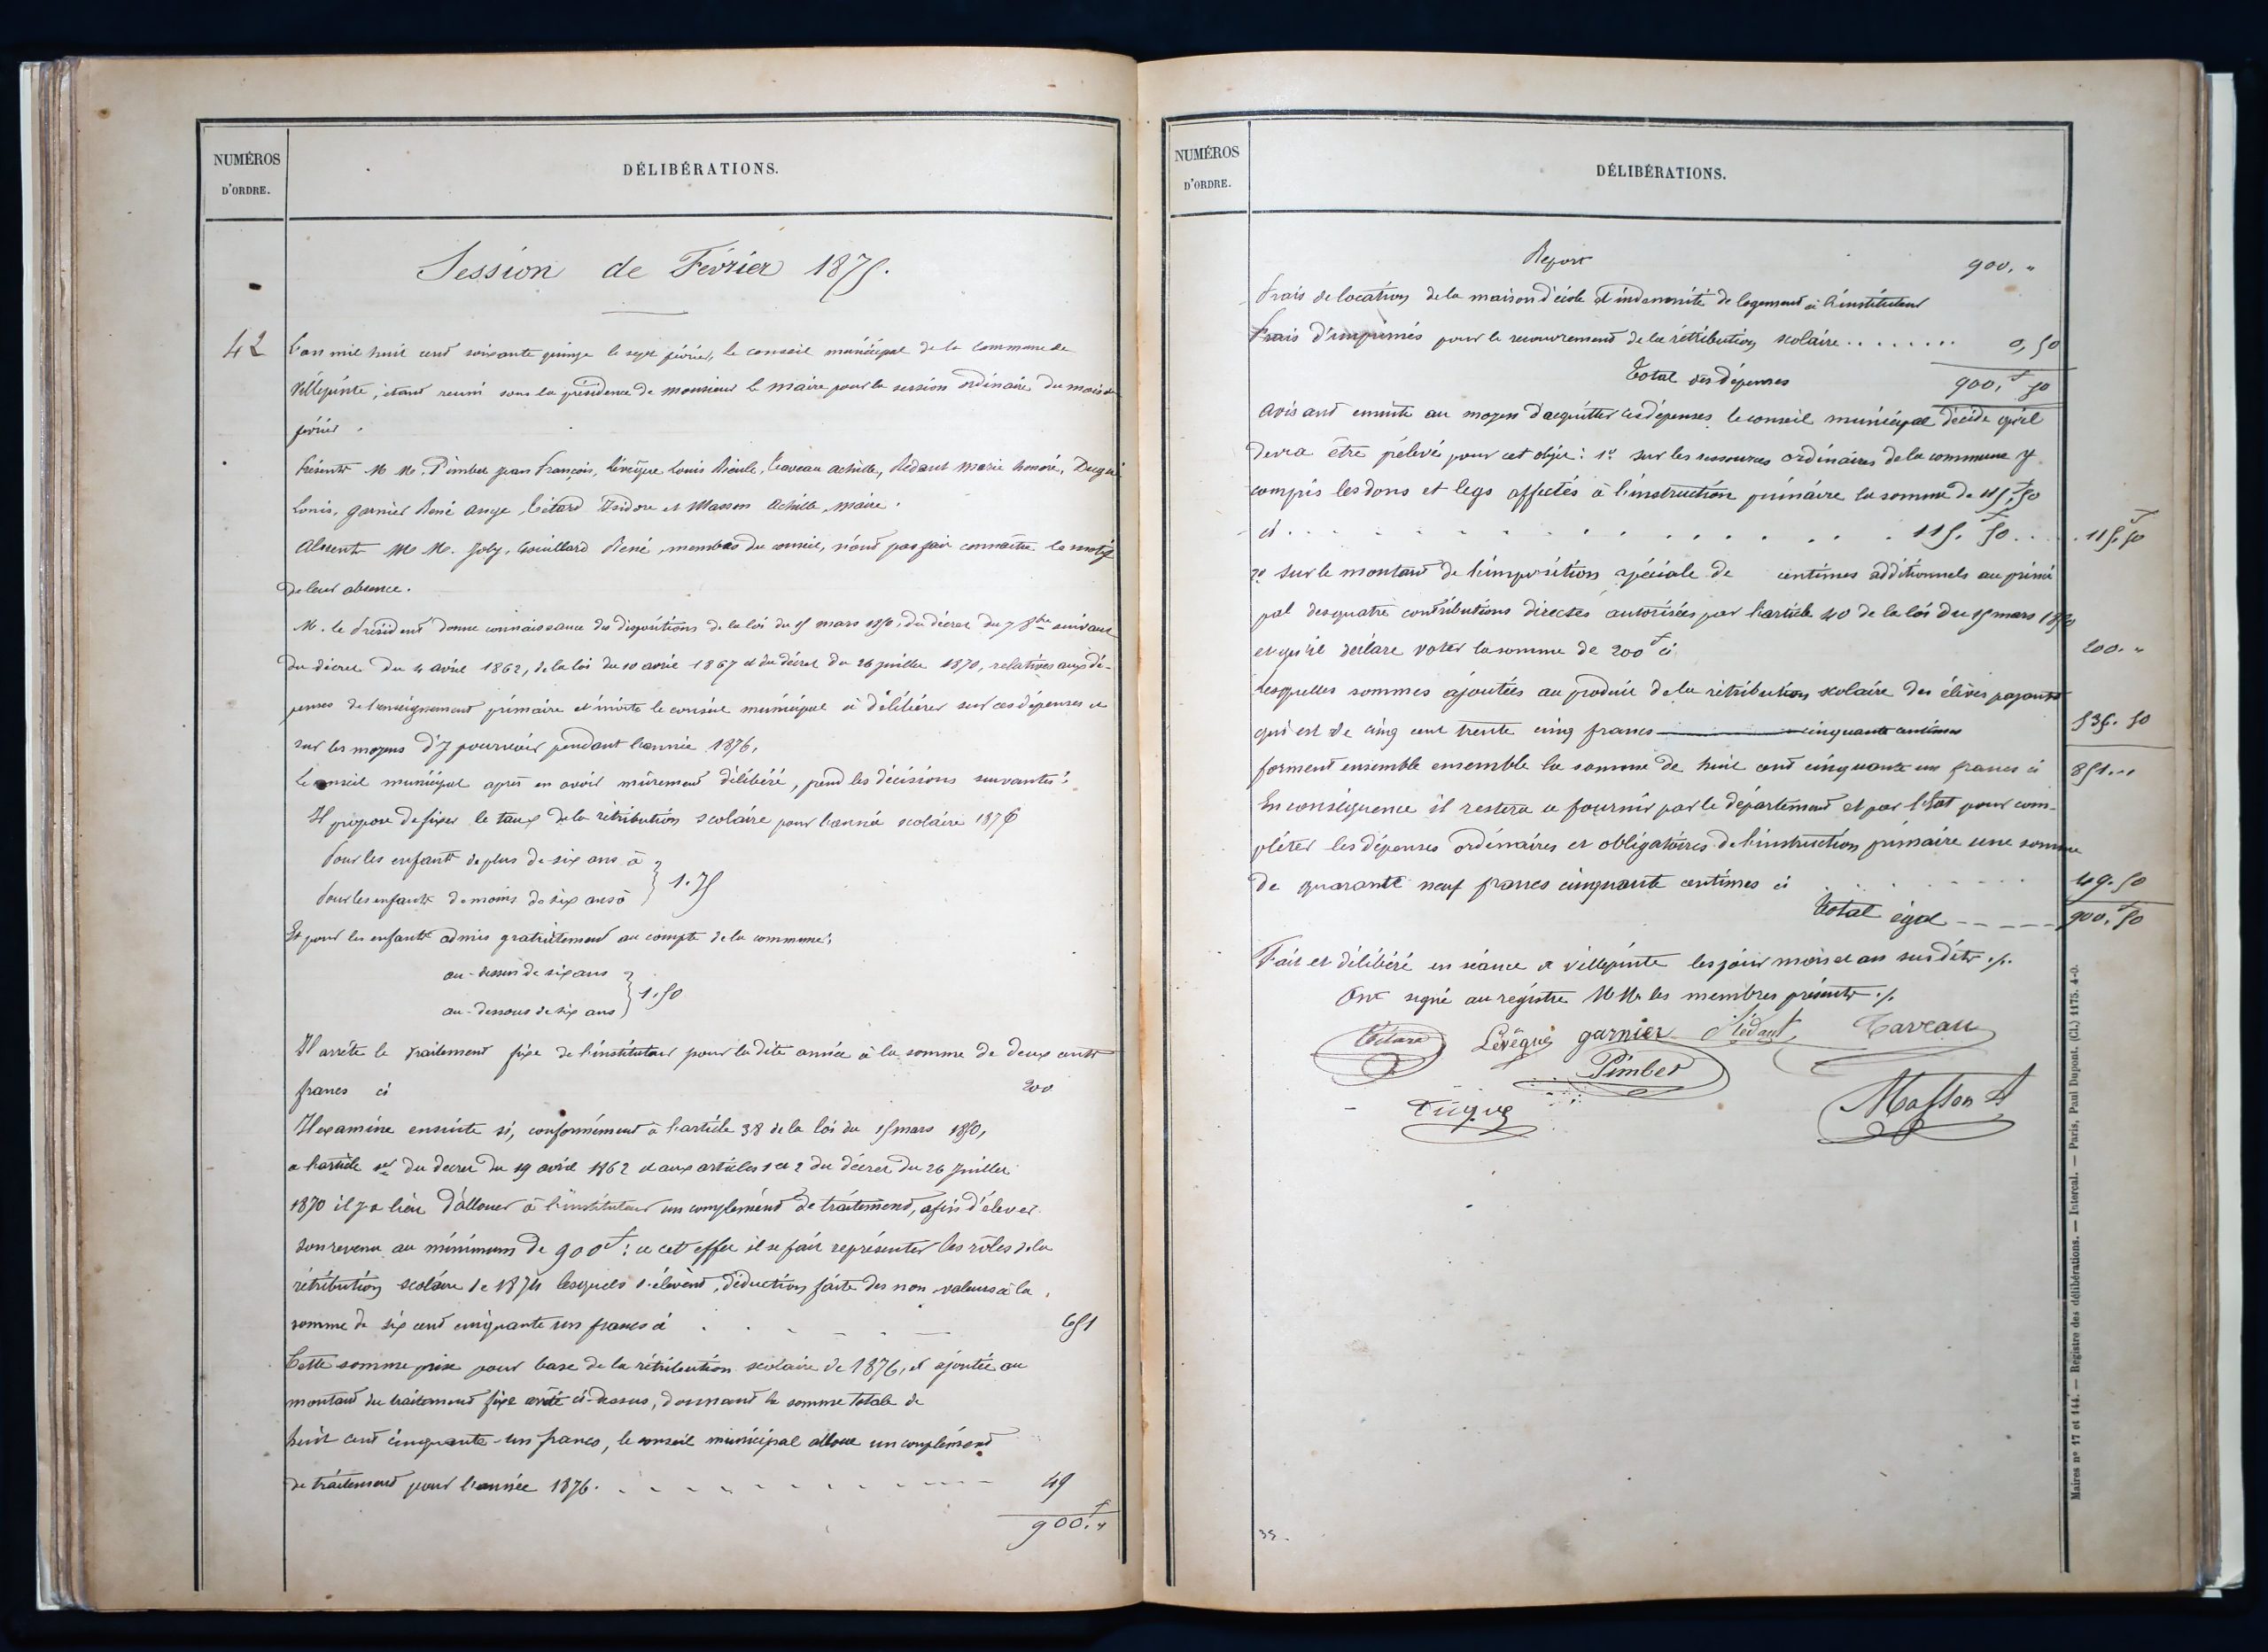 NUMÉROS
D'ORDRE.
DÉLIBÉRATIONS.
Session de Février 1875.
42
L'an mil huit cent soixante quinze le sept février, le conseil municipal de la commune de
Villepinte, étant reuni sous la présidence de monsieur le maire pour la session ordinaire du mois de
février.
Présents M M. Pimbet jean françois, Lévêque Louis, Taveau achille, Rédant Marie honoré, Duqué
Louis, garnier René ange, Létard Isidore et Masson Achille, maire.
Absents M M. Joly, Couillard René, membres du conseil, n'ont pas fait connaître le motif
de leur absence.
M. le Président donne connaissance des dispositions de la loi du 15 mars 1850, du décret du 7 8bre suivant
du décret du 4 avril 1862, de la loi du 10 avril 1867 et du décret du 26 juillet 1870, relatives aux dé-
penses de l'enseignement primaire et invite le conseil municipal à délibérer sur ces dépenses et
sur les moyens d'y pourvoir pendant l'année 1876.
Le conseil municipal après en avoir mûrement délibéré, prend les décisions suivantes :
Il propose de fixer le taux de la rétribution scolaire pour l'année scolaire 1876
Pour les enfants de plus de six ans à
Pour les enfants de moins de six ans à } 1.75
Et pour les enfants admis gratuitement au compte de la commune,
au-dessus de six ans
au-dessous de six ans } 1.50
Il arrête le traitement fixe de l'instituteur pour la dite année à la somme de deux cents
francs ci 200
Il examine ensuite si, conformément à l'article 38 de la loi du 15 mars 1850,
a l'article 1er du decret du 19 avril 1862 et aux articles 1 et 2 du décret du 26 Juillet
1870 il y a lieu d'allouer à l'instituteur un complément de traitement, afin d'élever
son revenu au minimum de 900f : a cet effet il se fait représenter les rôles de la
rétribution scolaire de 1874 lesquels s'élèvent, déduction faite des non valeurs à la
somme de six cent cinquante un francs ci . . . 651
Cette somme prise pour base de la rétribution scolaire de 1876, et ajoutée au
montant du traitement fixe arrêté ci-dessus, donnant la somme totale de
huit cent cinquante-un francs, le conseil municipal alloue un complément
de traitement pour l'année 1876. . . . . . . 49
900.f "
NUMÉROS
D'ORDRE.
DÉLIBÉRATIONS.
Report 900. "
Frais de location de la maison d'école et indemnité de logement à l'instituteur
Frais d'imprimés pour le recouvrement de la rétribution scolaire . . . . . . . . 0,50
Total des dépenses 900,f 50
Avisant ensuite au moyen d'acquitter ces dépenses, le conseil municipal décide qu'il
devra être prélevé pour cet objet : 1º sur les ressources ordinaires de la commune y
compris les dons et legs affectés à l'instruction primaire la somme de 115,f 50
ci . . . . . . . . . . . . 115.f 50 . . . . 115.f 50
2º sur le montant de l'imposition spéciale de centimes additionnels au princi
pal des quatre contributions directes autorisées par l'article 40 de la loi du 15 mars 1850
et qu'il déclare voter la somme de 200f ci 200. "
lesquelles sommes ajoutées au produit de la rétribution scolaire des élèves payants
qui est de cinq cent trente cinq francs cinquante centimes 535.50
forment ensemble ensemble la somme de huit cent cinquante un francs ci 851. "
En conséquence il restera a fournir par le département et par l'Etat pour com-
pléter les dépenses ordinaires et obligatoires de l'instruction primaire une somme
de quarante neuf francs cinquante centimes ci 49.50
Total égal - - - - 900.f 50
Fait et délibéré en séance a villepinte les jour mois et an susdits ./.
Ont signé au registre M M. les membres présents ./.
Létard Lévêque garnier Rédant Taveau
Pimbet
Duqué Masson A
Maires nos 17 et 144. — Registre des délibérations. — Intercal. — Paris, Paul Dupont. (Cl.) 1175. 4-0.